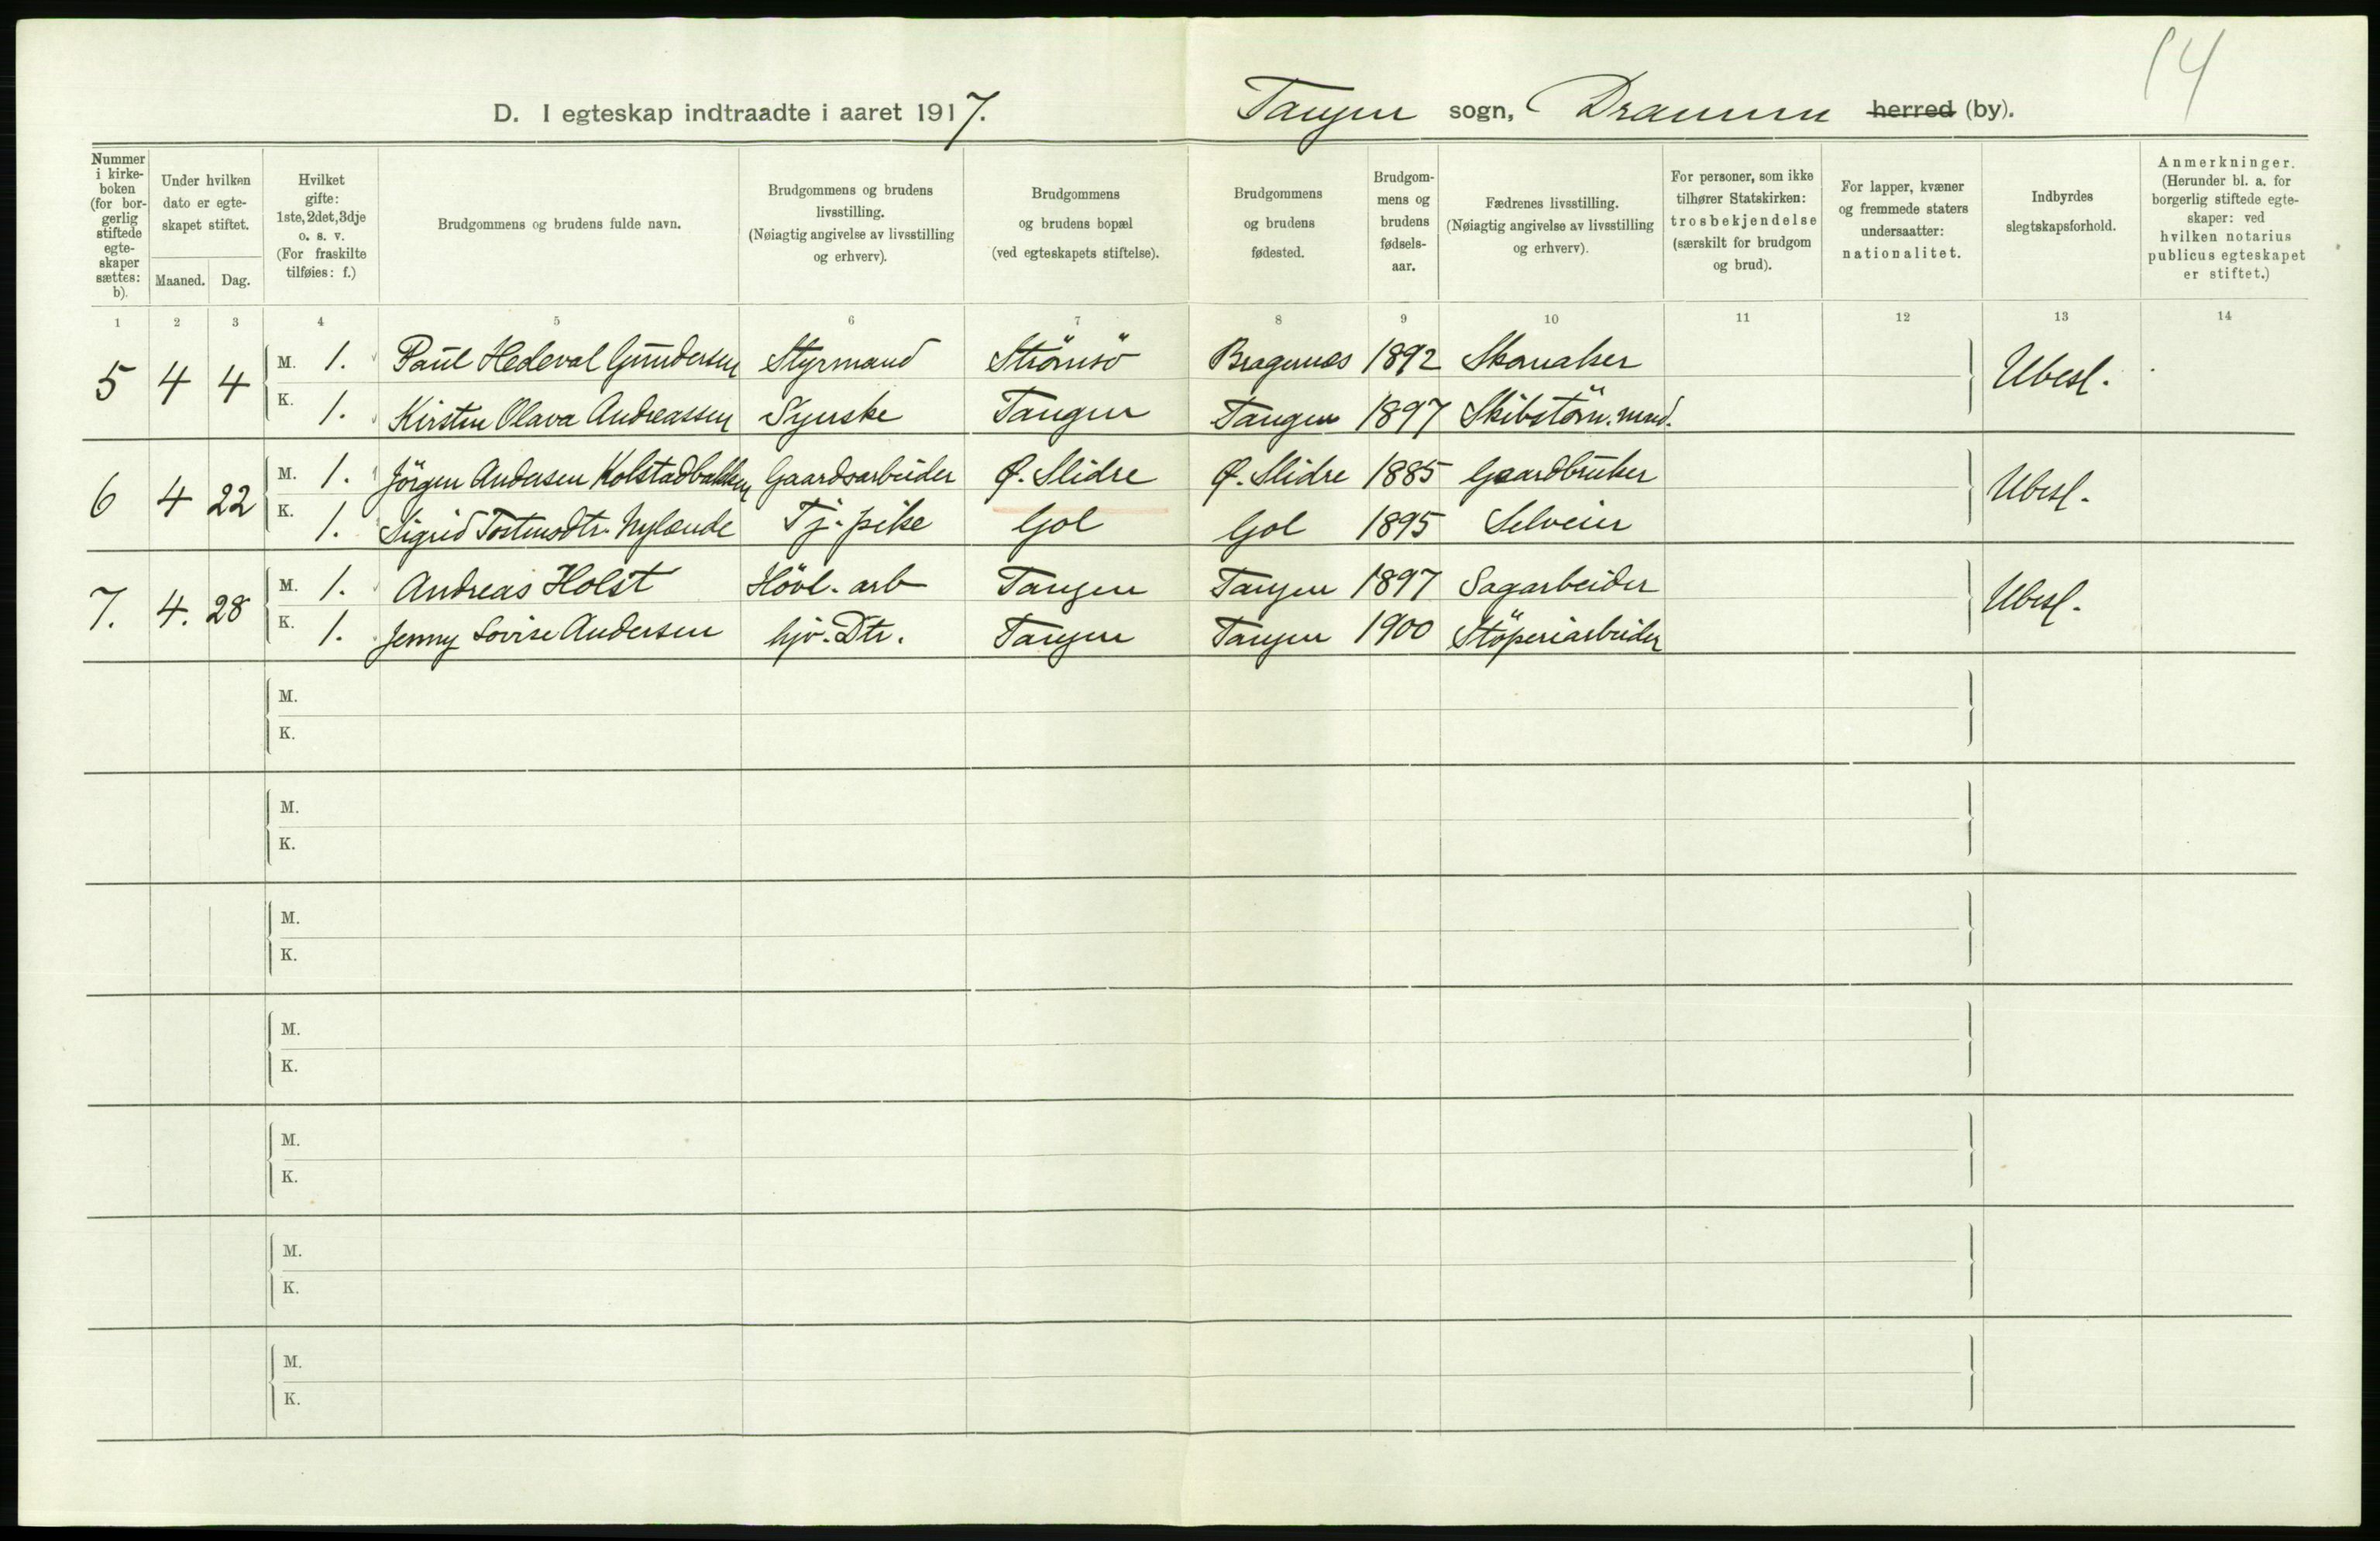 14
D. I egteskap indtraadte i aaret 1917. Tangen sogn, Drammen herred (by).
Nummer i kirkeboken (for borgerlig stiftede egteskaper sættes: b).
Under hvilken dato er egteskapet stiftet.
Maaned. Dag.
Hvilket gifte: 1ste, 2det, 3dje o. s. v. (For fraskilte tilføies: f.)
Brudgommens og brudens fulde navn.
Brudgommens og brudens livsstilling. (Nøiagtig angivelse av livsstilling og erhverv).
Brudgommens og brudens bopæl (ved egteskapets stiftelse).
Brudgommens og brudens fødested.
Brudgommens og brudens fødselsaar.
Fædrenes livsstilling. (Nøiagtig angivelse av livsstilling og erhverv).
For personer, som ikke tilhører Statskirken: trosbekjendelse (særskilt for brudgom og brud).
For lapper, kvæner og fremmede staters undersaatter: nationalitet.
Indbyrdes slegtskapsforhold.
Anmerkninger. (Herunder bl. a. for borgerlig stiftede egteskaper: ved hvilken notarius publicus egteskapet er stiftet.)
1 2 3 4 5 6 7 8 9 10 11 12 13 14
5 4 4 M. 1. Paul Hedeval Gundersen Styrmand Strömsö Bragernes 1892 Skomaker Ubesl.
K. 1. Kirsten Olava Andreassen Syerske Tangen Tangen 1897 Skibstöm.mand.
6 4 22 M. 1. Jörgen Andersen Kolstadbakken Gaardsarbeider Ø. Slidre Ø. Slidre 1885 Gaardbruker Ubesl.
K. 1. Sigrid Tostensdtr. Nylænde Tj. pike Gol Gol 1895 Selveier
7. 4. 28 M. 1. Andreas Holst Hövl. arb Tangen Tangen 1897 Sagarbeider Ubesl.
K. 1. Jenny Lovise Andersen hjv. Dtr. Tangen Tangen 1900 Stöperiarbeider
M.
K.
M.
K.
M.
K.
M.
K.
M.
K.
M.
K.
M.
K.